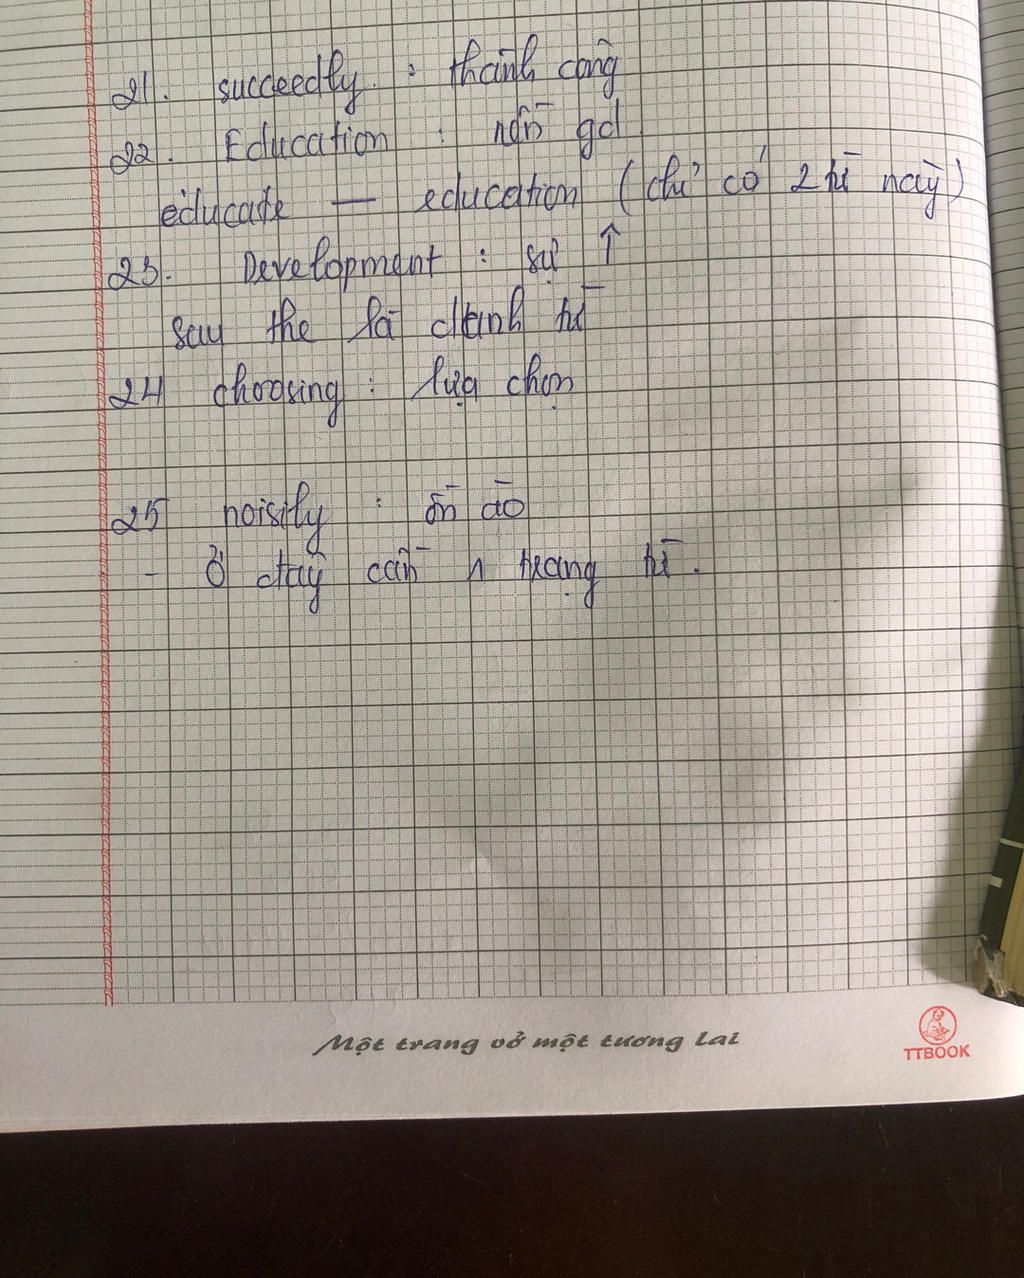 21. succeedly : thành công
22. Education : nền gd
educate — education (chỉ có 2 từ này)
23. Development : sự ↑
sau the là danh từ
24 choosing : lựa chọn
25 noisily : ồn ào
- Ở đây cần 1 trạng từ.
Một trang vở một tương lai
TTBOOK